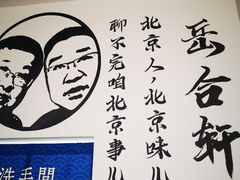 岳台轩
北京人儿北京味儿
聊不完咱北京事儿
洗手間